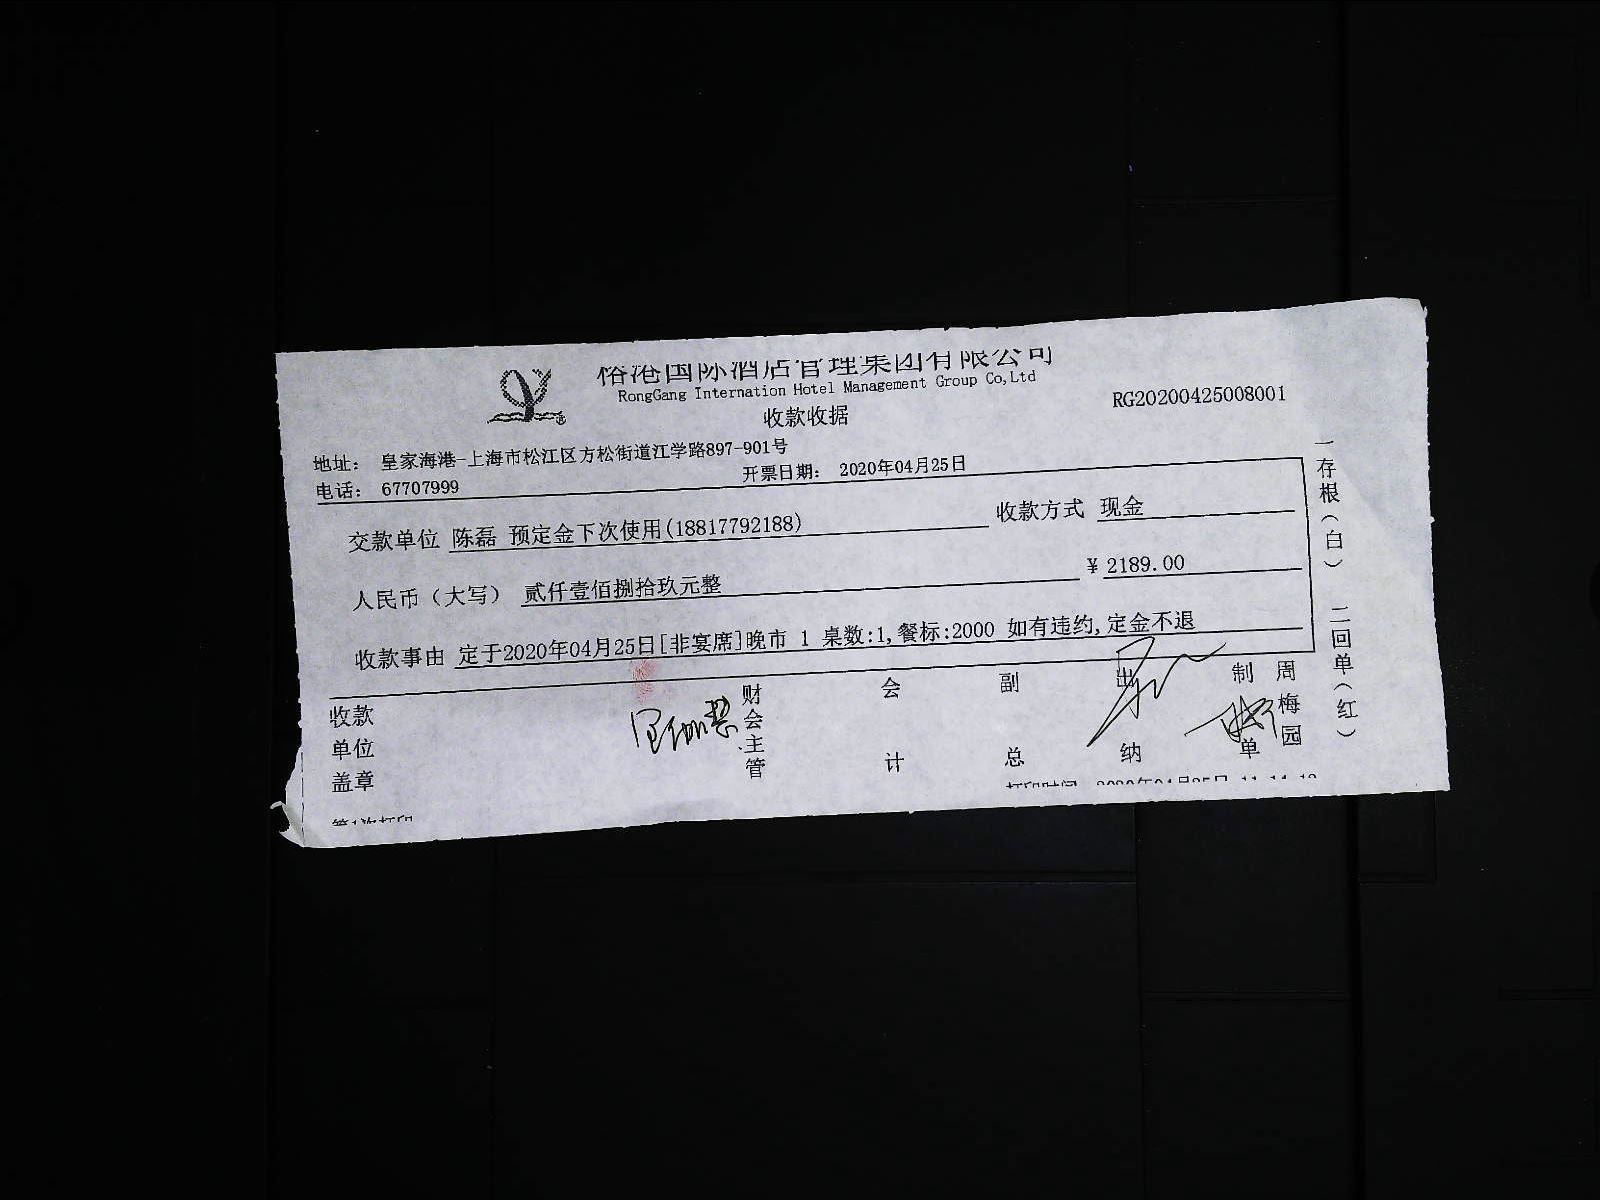 榕港国际酒店管理集团有限公司
RongGang International Hotel Management Group Co,Ltd
收款收据
RG20200425008001
地址： 皇家海港-上海市松江区方松街道江学路897-901号
电话： 67707999 开票日期： 2020年04月25日
交款单位 陈磊 预定金下次使用(18817792188) 收款方式 现金
人民币（大写） 贰仟壹佰捌拾玖元整 ¥ 2189.00
收款事由 定于2020年04月25日[非宴席]晚市 1 桌数:1,餐标:2000 如有违约,定金不退
收款单位盖章 财会主管 会计 副总 出纳 制单 周梅园
打印时间 2020年04月25日 11:14:12
第1次打印
一存根（白） 二回单（红）